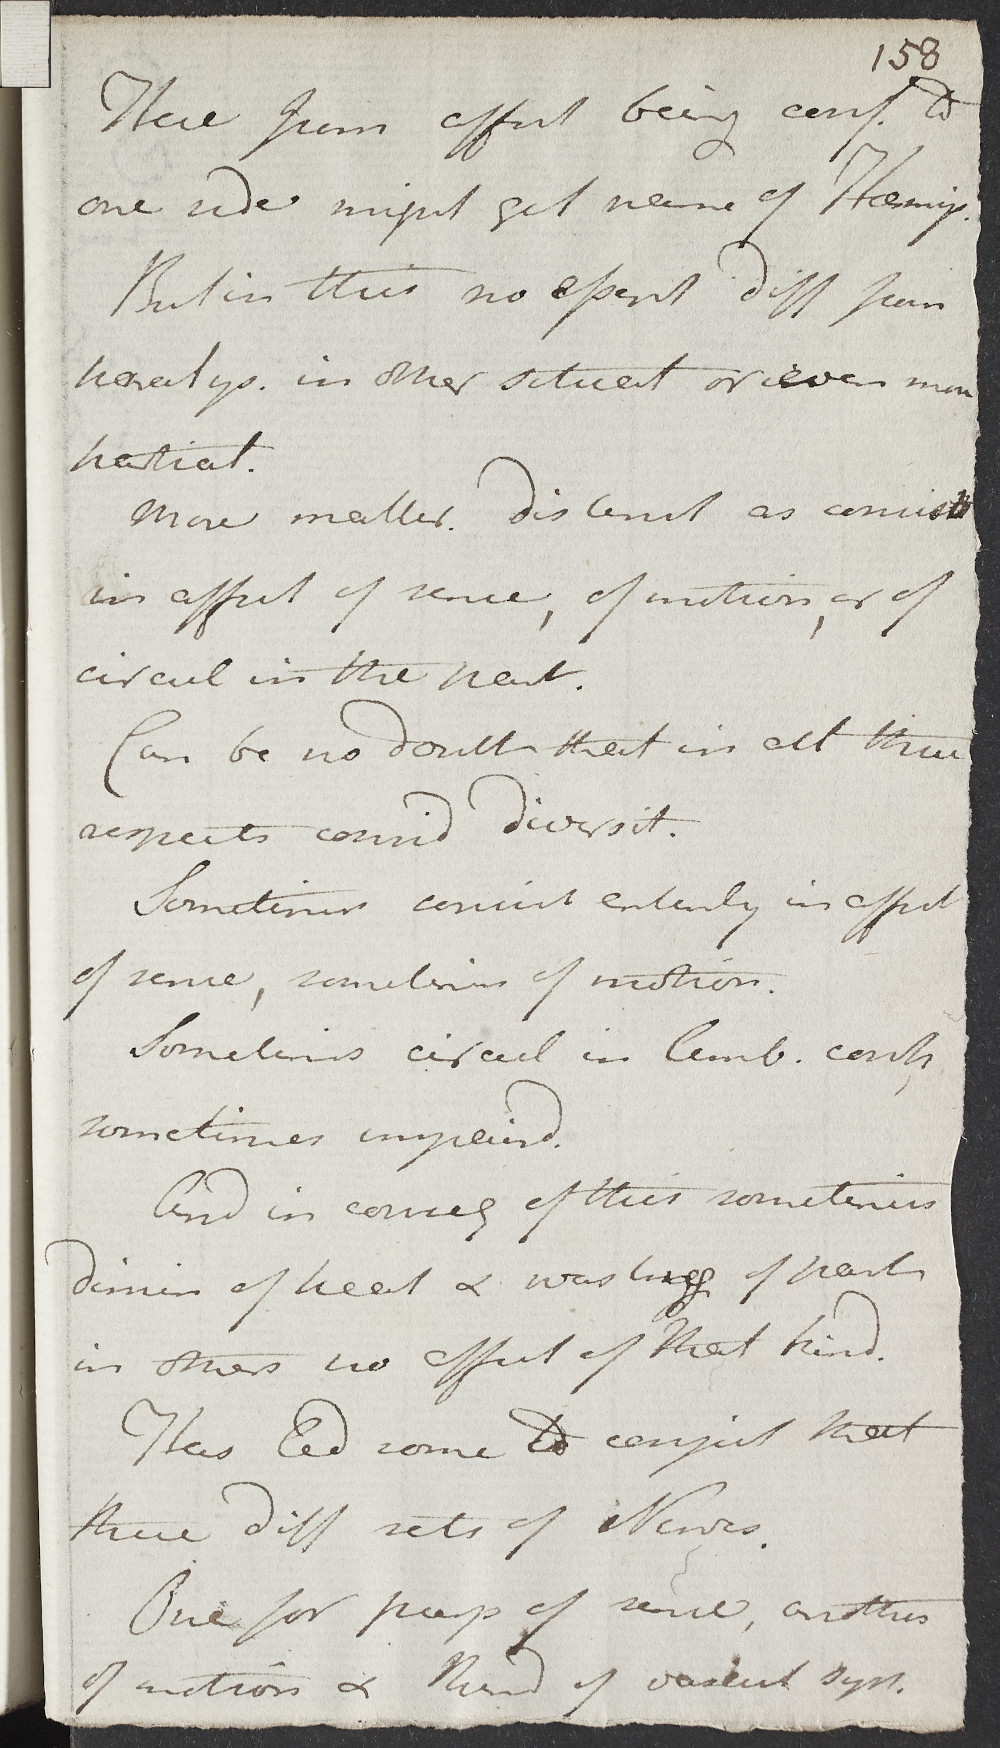 158
These from affect being conf. to
one side might get name of Hemip.
But in this no essent diff from
paralys. in other situat or even more
partial.
More mater. distinct as consists
in affect of sense, of motion, or of
circul in the part.
Can be no doubt that in all these
respects consid diversit.
Sometimes consist entirely in affect
of sense, sometimes of motion.
Sometimes circul in limb. conts,
sometimes impaird.
And in conseq of this sometimes
dimin of heat & wasting of parts
in others no effect of that kind.
Has led some to conject that
three diff sets of Nerves.
One for purp of sense, another
of motion & third of vascul syst.